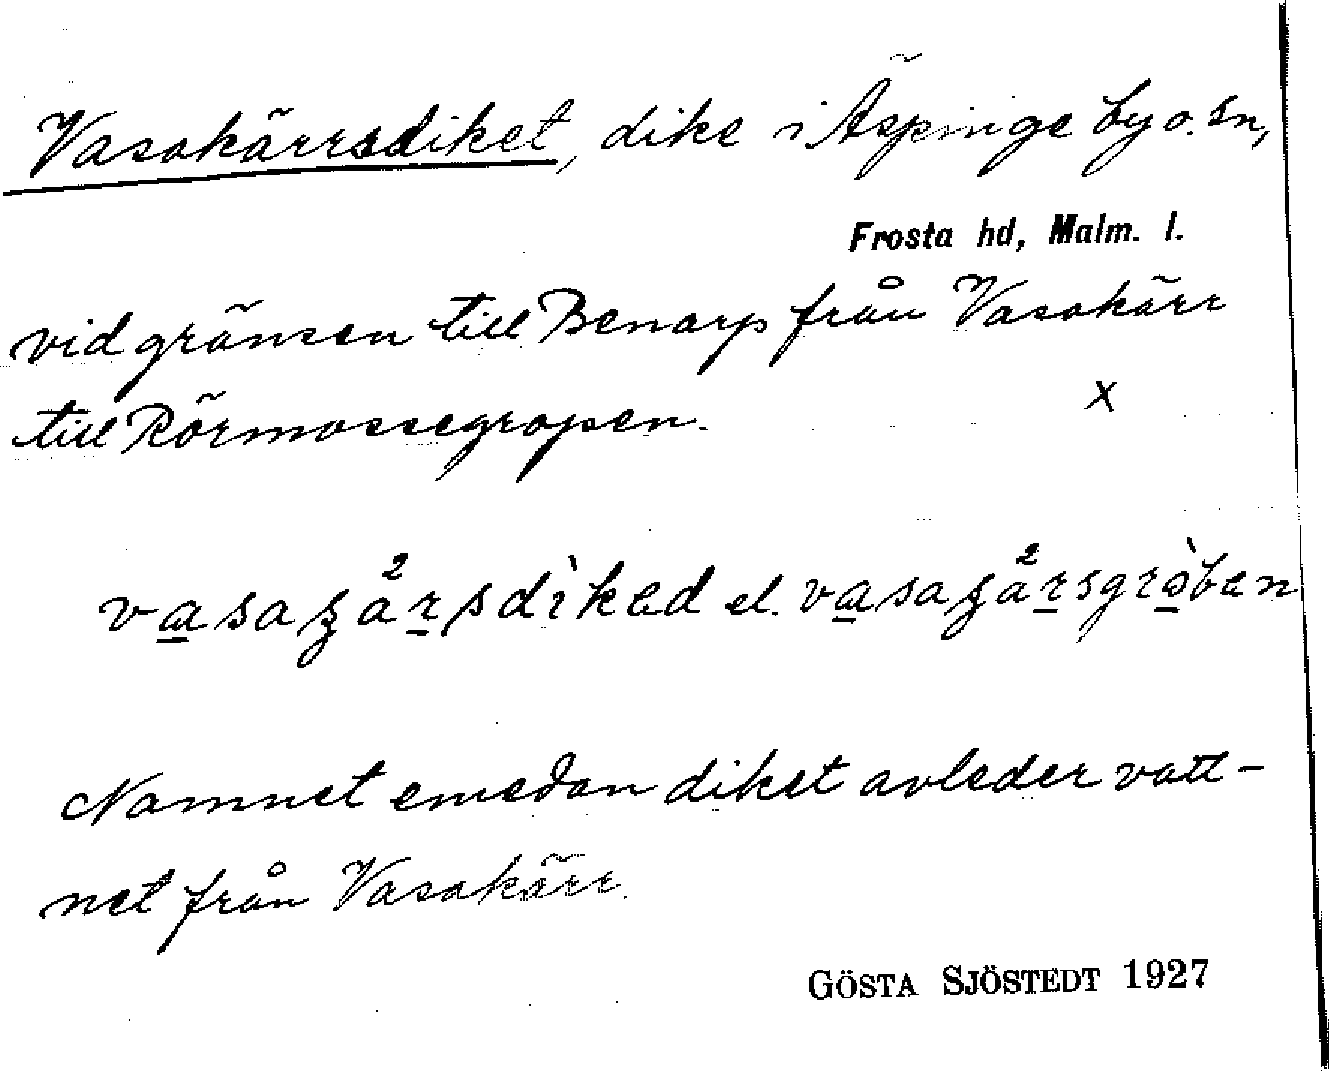 Vasakärrsdiket, dike i Äspinge by o. sn,
Frosta hd, Malm. l.
vid gränsen till Benarp från Vasakärr
till Rörmossegropen. x
el.
Namnet emedan diket avleder vatt-
net från Vasakärr.
GÖSTA SJÖSTEDT 1927